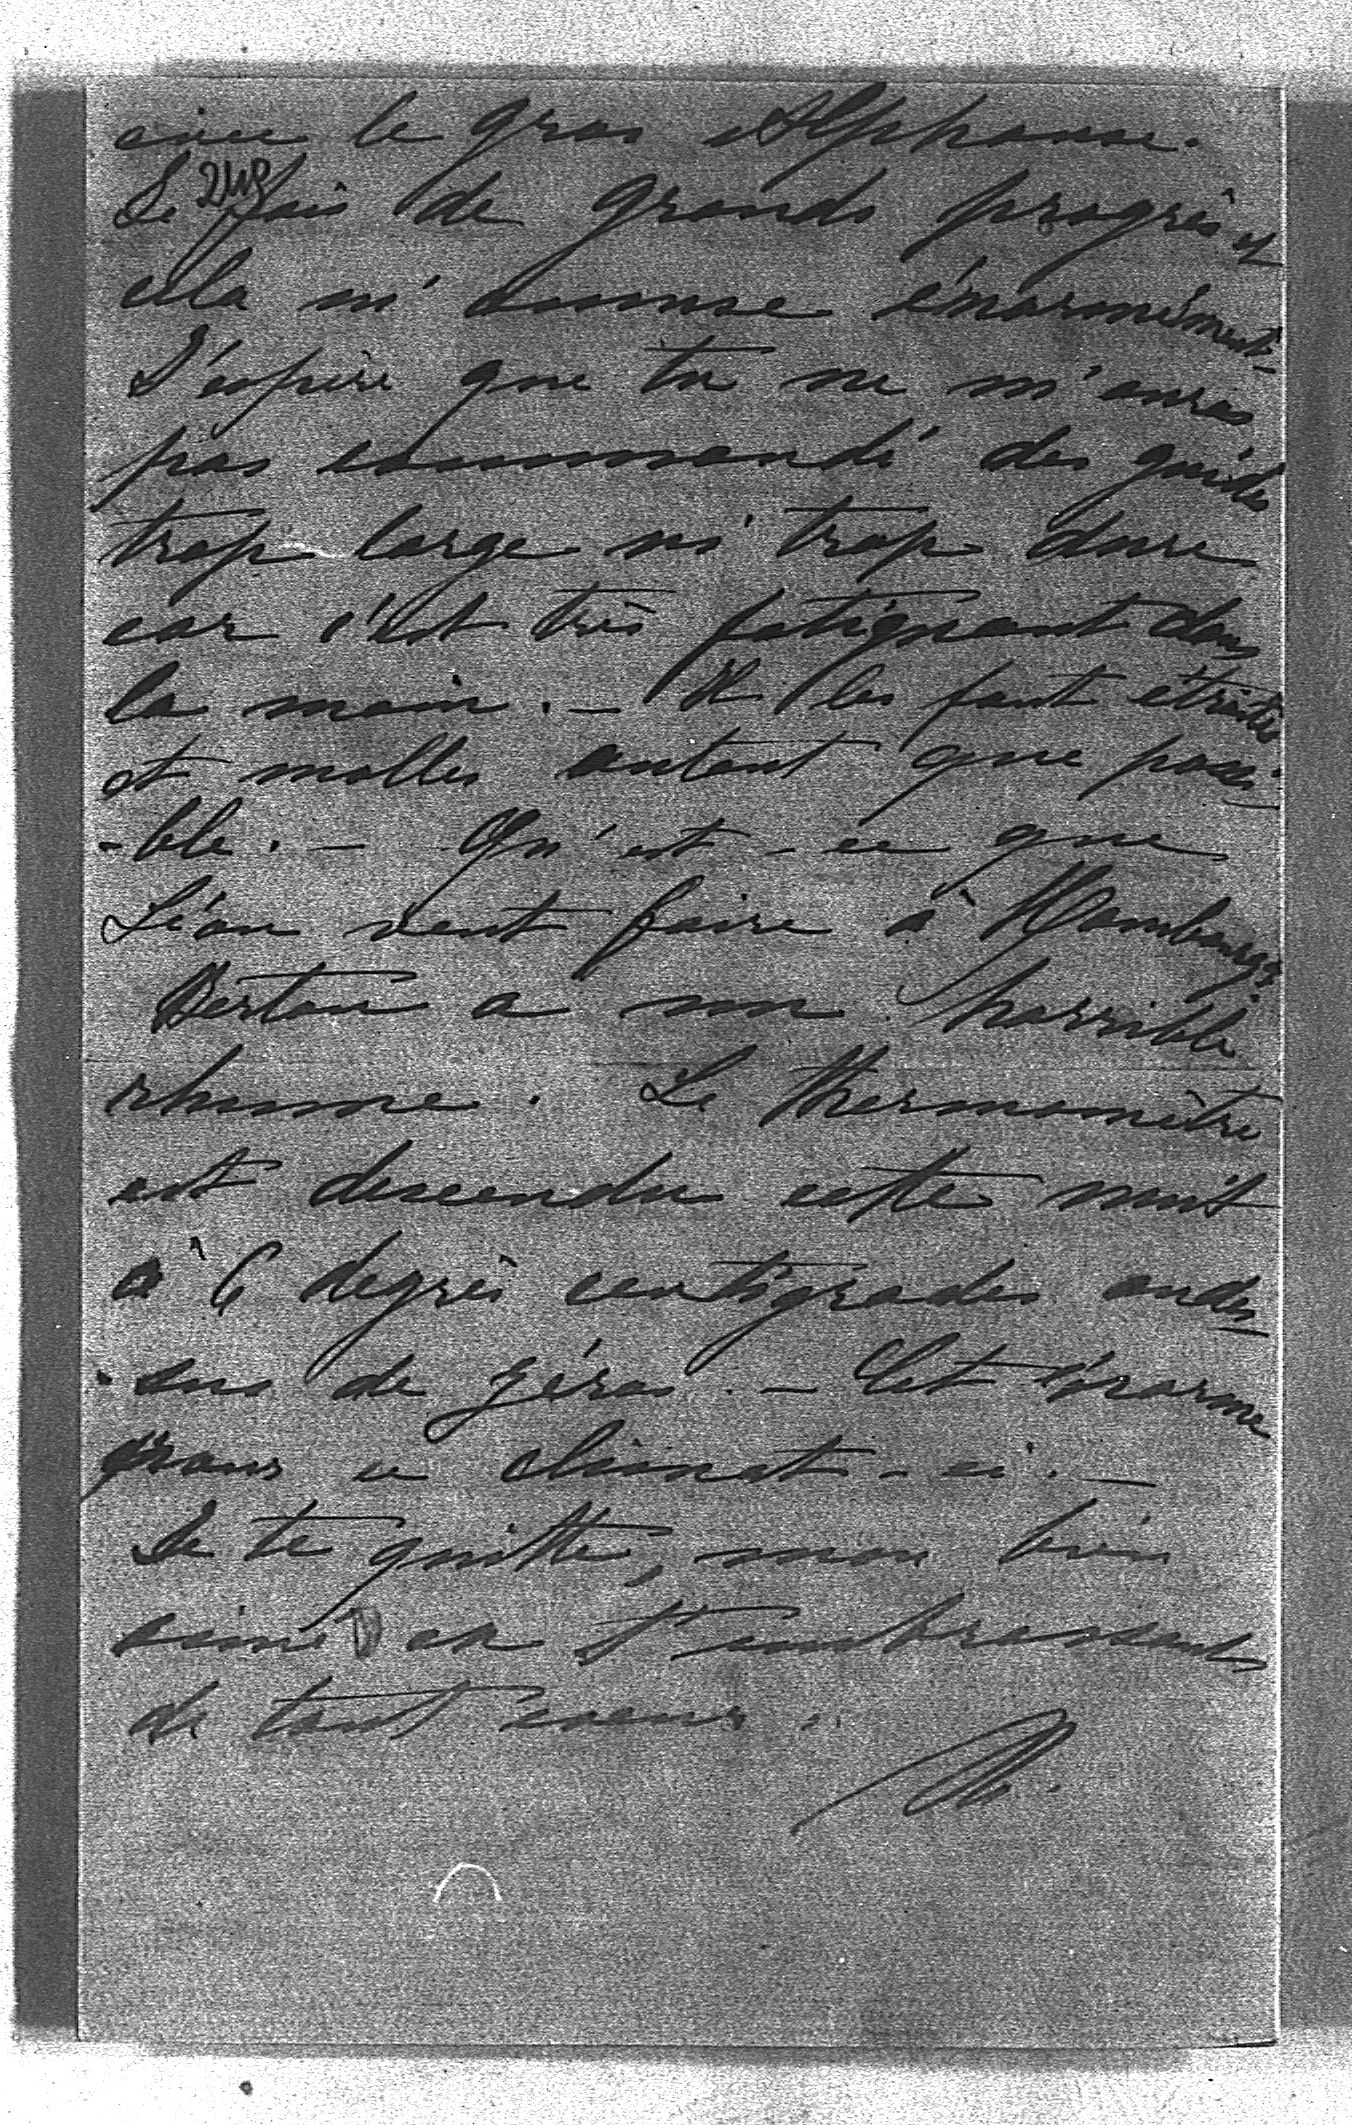 avec le gros Alphonse.
Je fais de grands progrès et
cela m'amuse énormément.
J'espère que tu ne m'auras
pas commandé des guides
trop large ni trop dure
car c'est très fatignant dans
la main. — Il les faut étroites
et molles autant que possi-
-ble. — Qu'est-ce que
Léon veut faire à Hambourg?
a un horrible
rhume. Le thermomètre
est descendu cette nuit
à 6 degrès centigrades audes-
-sus de zéro. — C'est énorme
pour ce climat-ci. —
Je te quitte, mon bien
aimé en t'embrassant
de tout coeur.